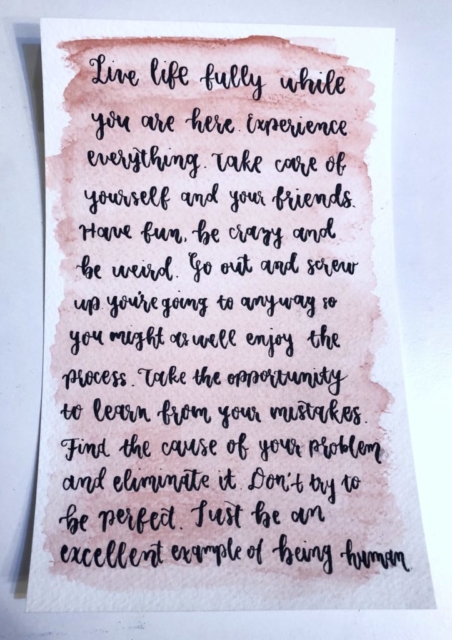 Live life fully while
you are here. Experience
everything. Take care of
yourself and your friends.
Have fun, be crazy and
be weird. Go out and screw
up you're going to anyway so
you might as well enjoy the
process. Take the opportunity
to learn from your mistakes.
Find the cause of your problem
and eliminate it. Don't try to
be perfect. Just be an
excellent example of being human